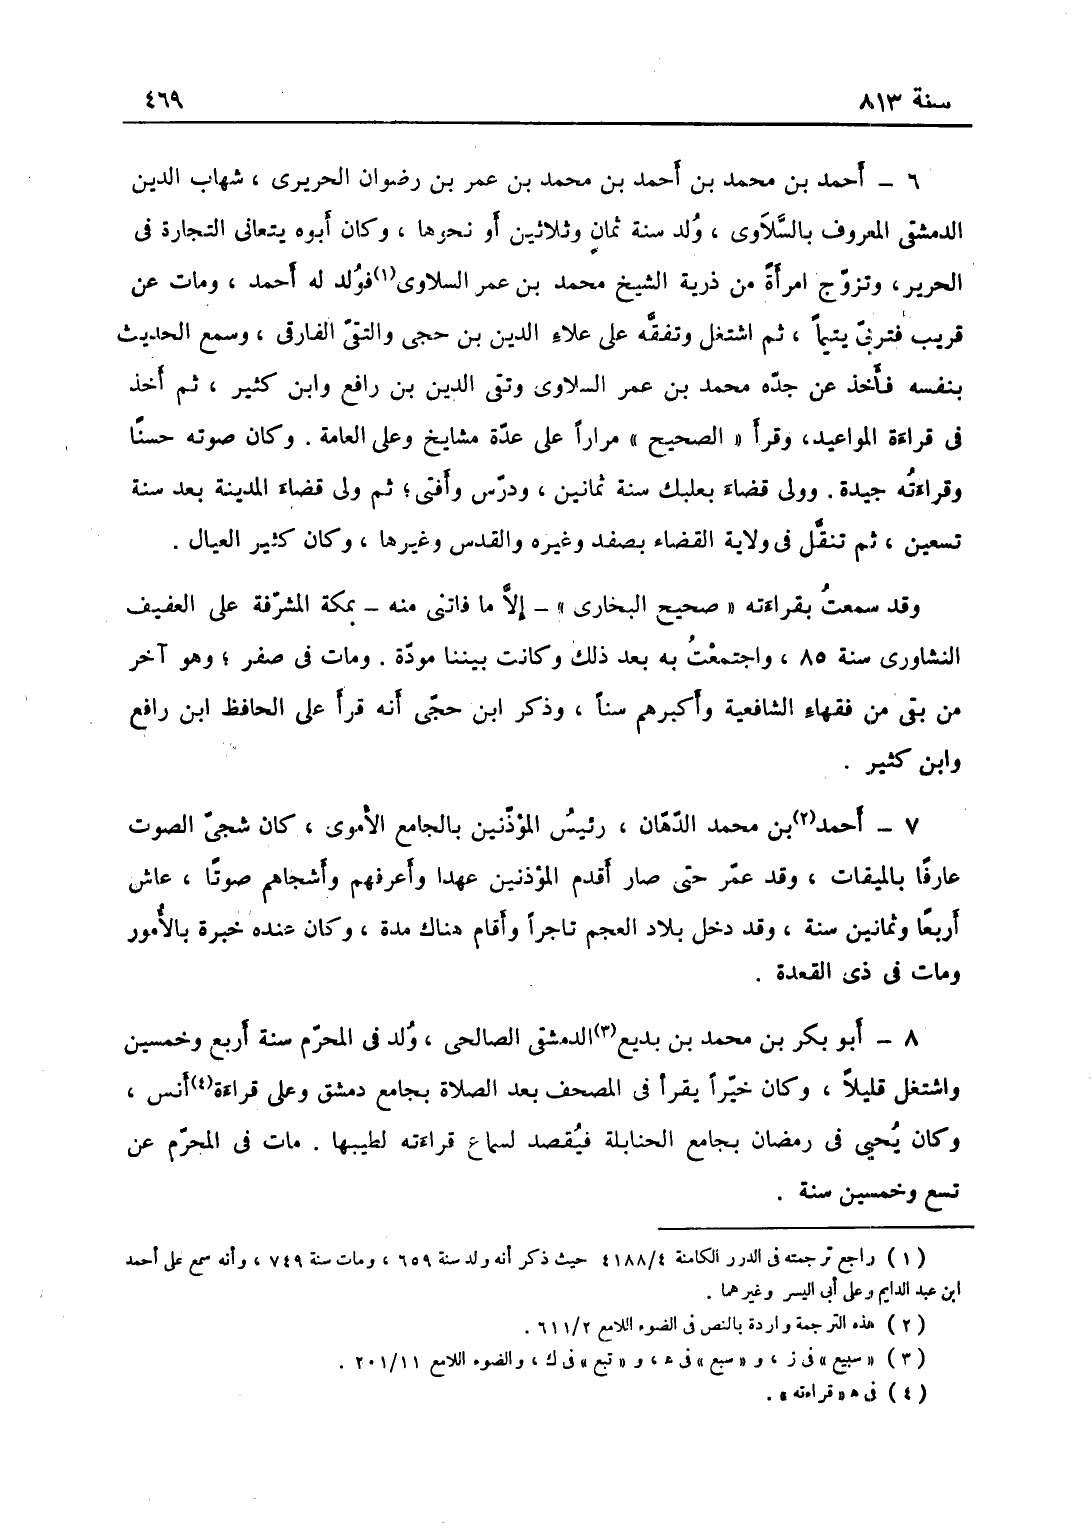 سنة ٨١٣
٤٦٩
٦ – أَحمد بن محمد بن أَحمد بن محمد بن عمر بن رضوان الحريرى ، شهاب الدين
الدمشقى المعروف بالسَّلاَوى ، وُلد سنة ثمانٍ وثلاثين أَو نحوها ، وكان أَبوه يتعانى التجارة فى
الحرير، وتزوّج امرأَةً من ذرية الشيخ محمد بن عمر السلاوى(١)فوُلد له أَحمد ، ومات عن
قريب فتربىّ يتيماً ، ثم اشتغل وتفقَّه على علاء الدين بن حجى والتقىّ الفارقى ، وسمع الحديث
بنفسه فأَخذ عن جدّه محمد بن عمر السلاوى وتقى الدين بن رافع وابن كثير ، ثم أَخذ
فى قراءة المواعيد، وقرأَ « الصحيح » مراراً على عدّة مشايخ وعلى العامة . وكان صوته حسنًا
وقراءتُه جيدة . وولى قضاءَ بعلبك سنة ثمانين ، ودرّس وأَفتى؛ ثم ولى قضاءَ المدينة بعد سنة
تسعين ، ثم تنقَّل فى ولاية القضاء بصفد وغيره والقدس وغيرها ، وكان كثير العيال .
وقد سمعتُ بقراءته « صحيح البخارى » – إلاَّ ما فاتنى منه – بمكة المشرّفة على العفيف
النشاورى سنة ٨٥ ، واجتمعْتُ به بعد ذلك وكانت بيننا مودّة . ومات فى صفر ؛ وهو آخر
من بقى من فقهاء الشافعية وأَكبرهم سناً ، وذكر ابن حجّى أَنه قرأَ على الحافظ ابن رافع
وابن كثير .
٧ – أَحمد(٢)بن محمد الدّهّان ، رئيسُ المؤذّنين بالجامع الأُموى ، كان شجىّ الصوت
عارفًا بالميقات ، وقد عمّر حتى صار أَقدم المؤذنين عهدا وأَعرفهم وأَشجاهم صوتًا ، عاش
أَربعًا وثمانين سنة ، وقد دخل بلاد العجم تاجراً وأَقام هناك مدة ، وكان عنده خبرة بالأُمور
ومات فى ذى القعدة .
٨ – أَبو بكر بن محمد بن بديع(٣)الدمشقى الصالحى ، وُلد فى المحرّم سنة أَربع وخمسين
واشتغل قليلاً ، وكان خيّراً يقرأ فى المصحف بعد الصلاة بجامع دمشق وعلى قراءة(٤)أَنس ،
وكان يُحيى فى رمضان بجامع الحنابلة فيُقصد لسماع قراءته لطيبها . مات فى المحرّم عن
تسع وخمسين سنة .
( ١ ) راجع ترجمته فى الدرر الكامنة ٤١٨٨/٤ حيث ذكر أنه ولد سنة ٦٥٩ ، ومات سنة ٧٤٩ ، وأنه سمع على أحمد
ابن عبد الدايم وعلى أبى اليسر وغيرهما .
( ٢ ) هذه الترجمة واردة بالنص فى الضوء اللامع ٦١١/٢ .
( ٣ ) « سبيع » فى ز ، و « سبع » فى ﻫ ، و « تبع » فى ك ، والضوء اللامع ٢٠١/١١ .
( ٤ ) فى ﻫ « قراءته » .